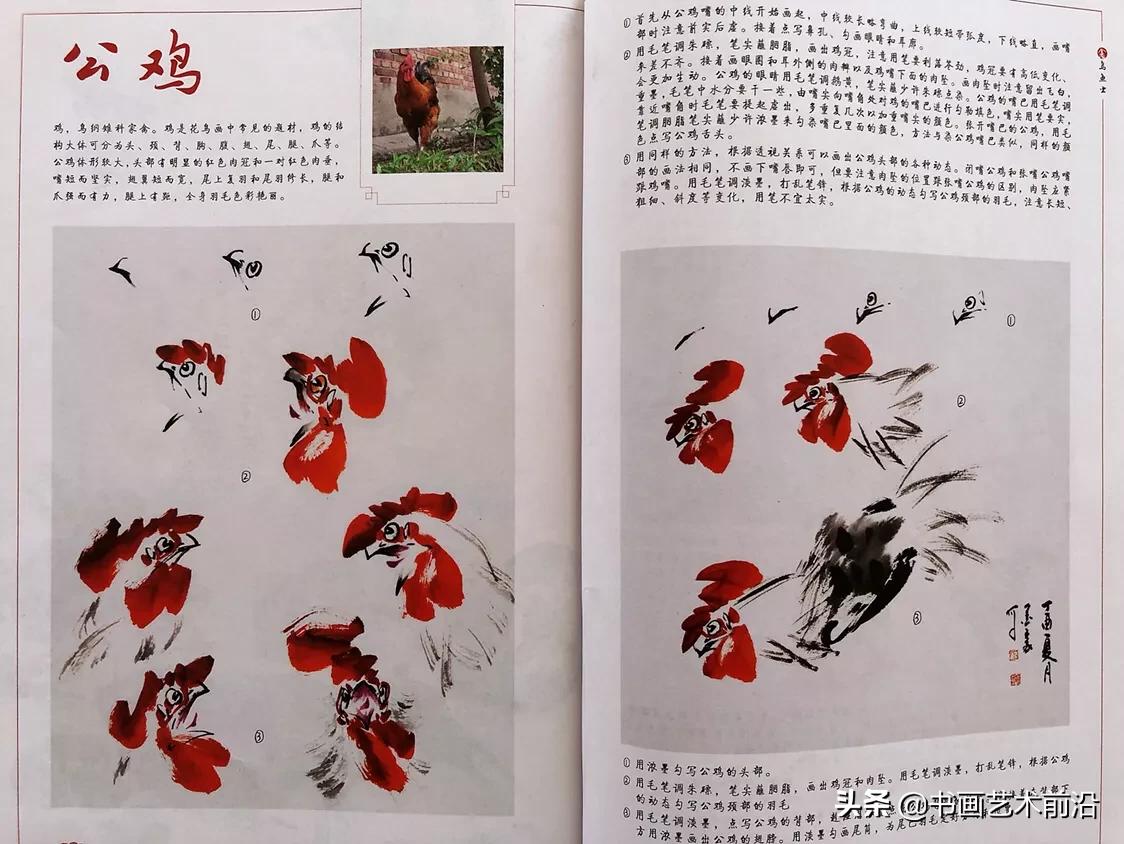 公鸡
鸡，鸟纲雉科家禽。鸡是花鸟画中常见的题材，鸡的结
构大体可分为头、颈、背、胸、腹、翅、尾、腿、爪等。
公鸡体形较大，头部有明显的红色肉冠和一对红色肉垂，
嘴短而坚实，翅翼短而宽，尾上复羽和尾羽修长，腿和
爪强而有力，腿上有距，全身羽毛色彩艳丽。
①
②
③
①首先从公鸡嘴的中线开始画起，中线较长略弯曲，上线较短带弧度，下线略直，画嘴
部时注意前实后虚。接着点写鼻孔、勾画眼睛和耳廓。
②用毛笔调朱磦，笔尖蘸胭脂，画出鸡冠，注意用笔要利落苍劲，鸡冠要有高低变化、
参差不齐。接着画眼圈和耳外侧的肉瓣以及鸡嘴下面的肉坠。画肉坠时注意留出飞白，
会更加生动。公鸡的眼睛用毛笔调鹅黄，笔尖蘸少许朱磦点染。公鸡的嘴巴用毛笔调
重墨，毛笔中水分要干一些，由嘴尖向嘴角处对鸡的嘴巴进行勾勒填色，嘴尖用笔要实，
靠近嘴角时毛笔要提起虚出，多重复几次以加重嘴尖的颜色。张开嘴巴的公鸡，用毛
笔调胭脂笔尖蘸少许浓墨来勾染嘴巴里面的颜色，方法与染公鸡嘴巴类似，同样的颜
色点写公鸡舌头。
③用同样的方法，根据透视关系可以画出公鸡头部的各种动态。闭嘴公鸡和张嘴公鸡嘴
部的画法相同，不画下嘴唇即可，但要注意肉坠的位置跟张嘴公鸡的区别，肉坠应紧
跟鸡嘴。用毛笔调淡墨，打乱笔锋，根据公鸡的动态勾写公鸡颈部的羽毛，注意长短、
粗细、斜度等变化，用笔不宜太实。
①
②
③
丁酉夏月
①用浓墨勾写公鸡的头部。
②用毛笔调朱磦，笔尖蘸胭脂，画出鸡冠和肉坠。用毛笔调淡墨，打乱笔锋，根据公鸡
的动态勾写公鸡颈部的羽毛
③用毛笔调淡墨，点写公鸡的背部，
方用浓墨画出公鸡的翅膀。用淡墨勾画尾筒，为尾巴羽毛
头条 @书画艺术前沿